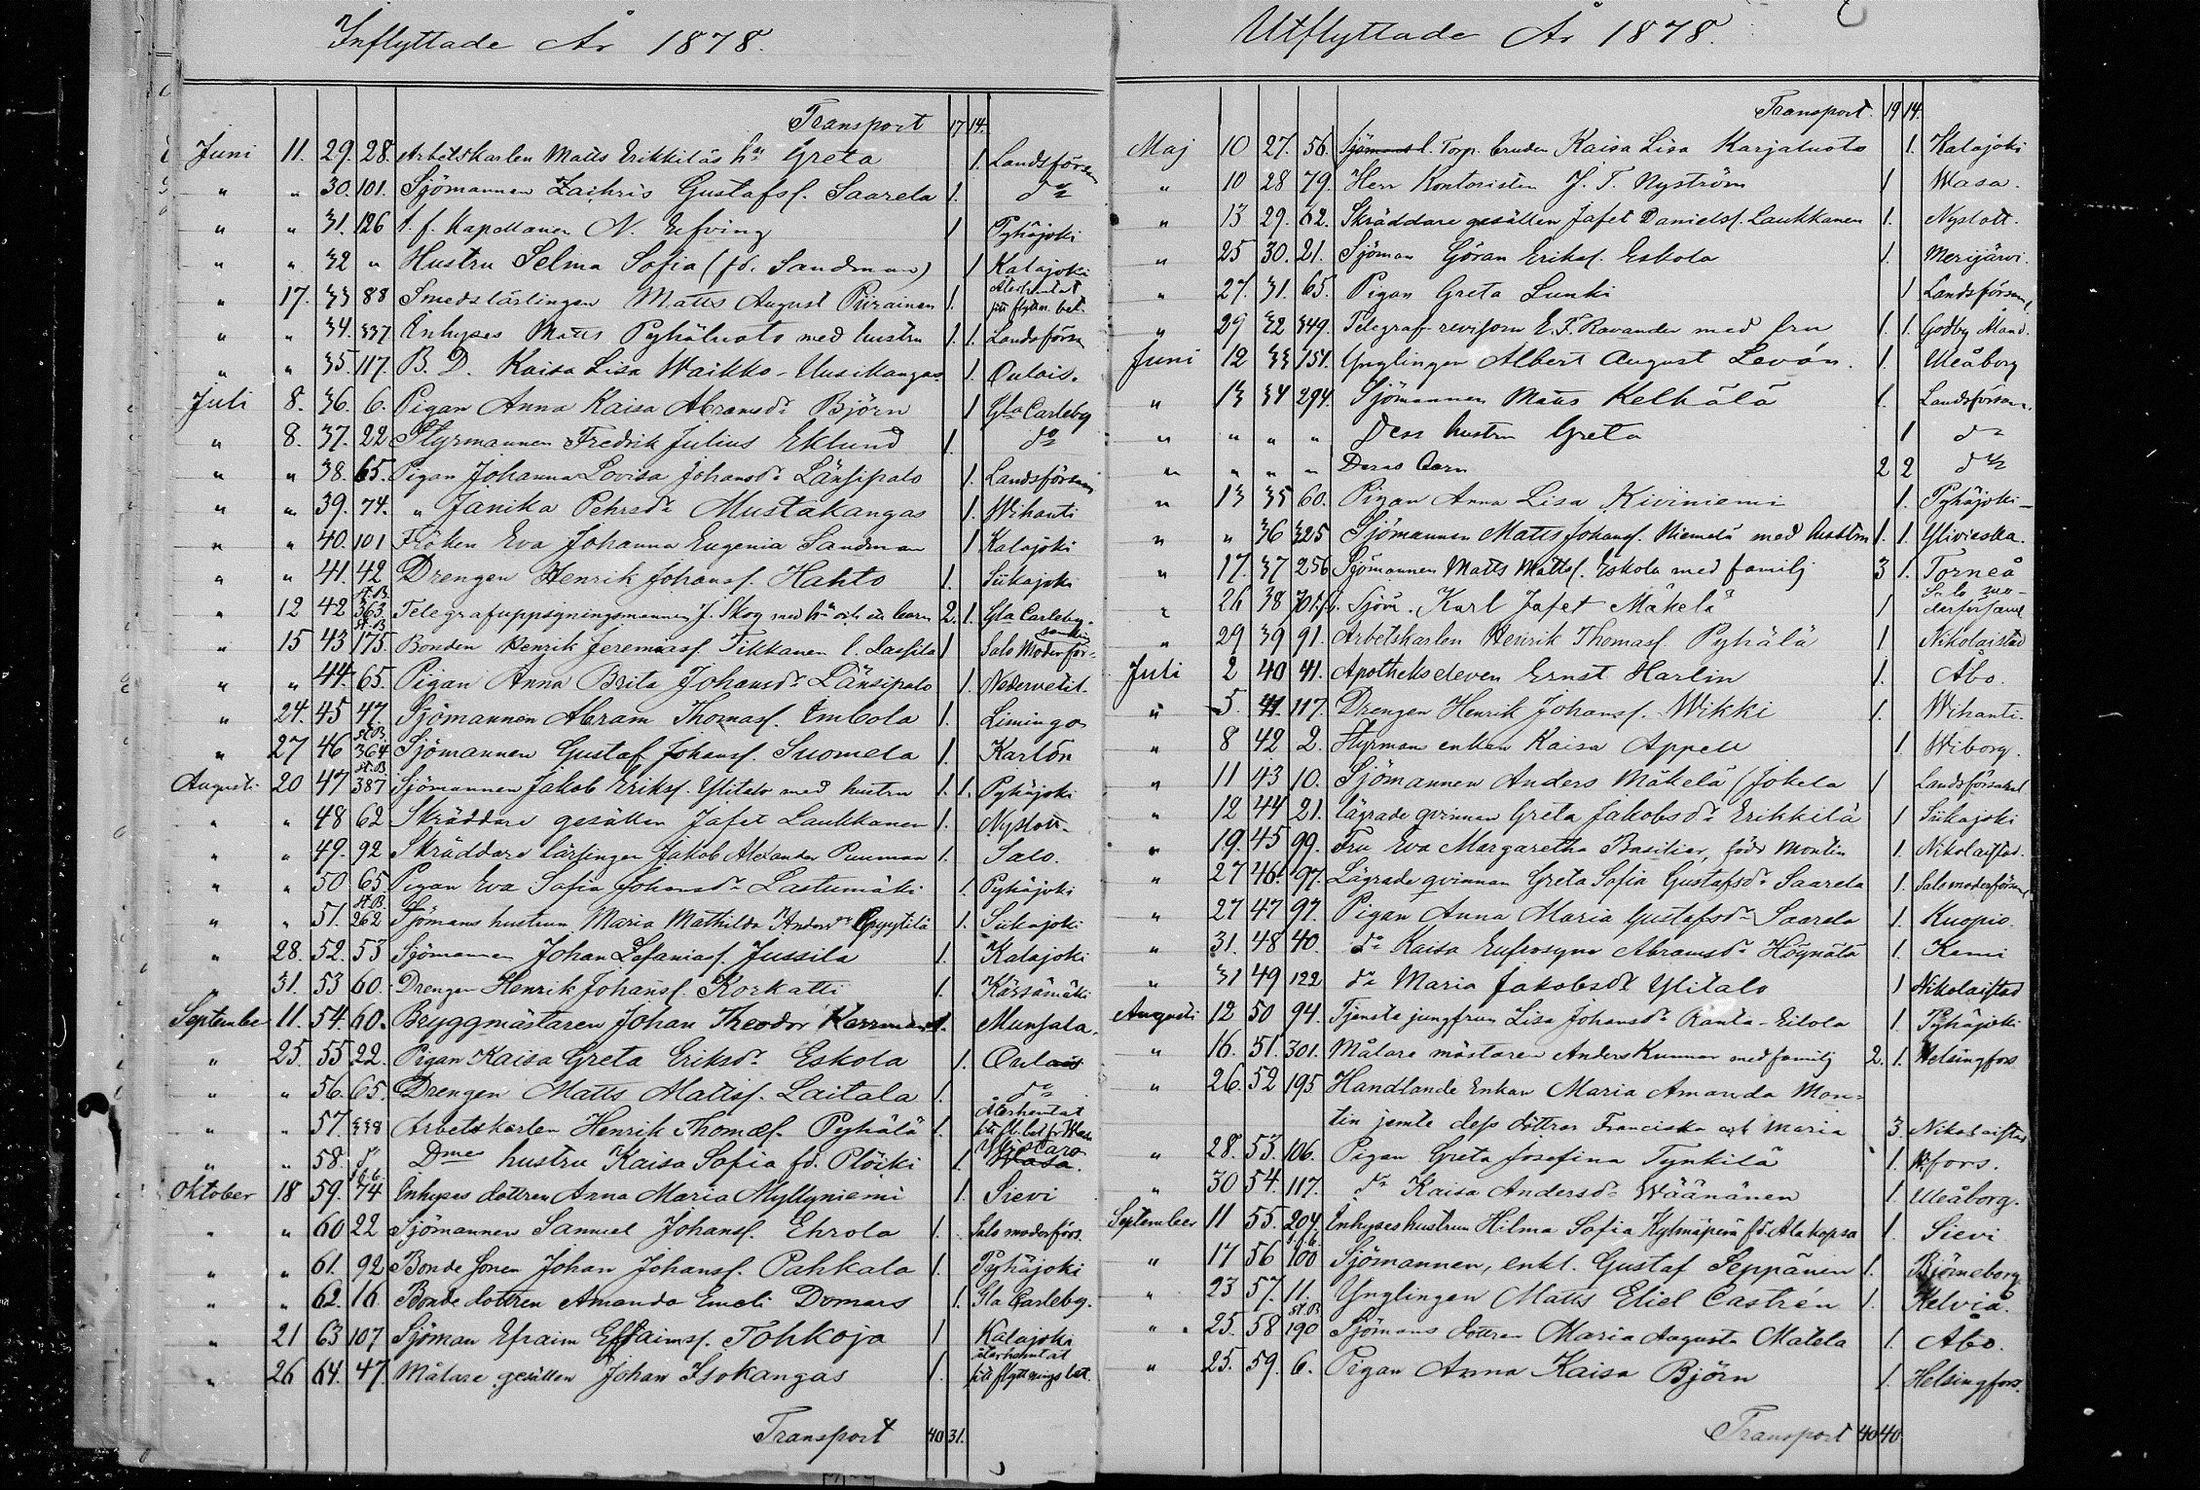 Inflyttade År 1878.
Transport 17 14.
Juni 11. 29. 28. Arbetskarlen Matts Erikkiläs hu Greta 1. Landsförsam
" " 30. 101. Sjömannen Zachris Gustafss. Saarela 1. do
" " 31. 126 t. f. Kapellanen N. Erfving 1 Pyhäjoki
" " 32 " Hustru Selma Sofia (fd. Sandman) 1 Kalajoki
" 17. 33 88 Smedslärlingen Matts August Piirainen 1. Återhemtat sitt flyttn. bet.
" " 34. 337 Inhyses Matts Pyhäluoto med hustru 1. 1. Landsförs
" " 35. 117. B. D. Kaisa Lisa Waikko-Uusikangas 1. Oulais.
Juli 8. 36. 6. Pigan Anna Kaisa Abramsdr Björn 1 Gla Carleby
" 8. 37. 22 Styrmannen Fredrik Julius Eklund 1. do
" " 38. 65. Pigan Johanna Lovisa Johansdr Länsipalo 1. Landsförsam
" " 39. 74. " Janika Pehrsdr Mustakangas 1. Wihanti
" " 40. 101 Fröken Eva Johanna Eugenia Sandman 1 Kalajoki
" " 41. 42 Drengen Henrik Johanss. Hahto 1. Siikajoki
" 12 42 St.B. 363 Telegrafuppsyningsmannen J. Skog med hu och en barn 2. 1. Gla Carleby
" 15 43 St.B 175. Bonden Henrik Jeremiass. Tikkanen l. Lassila 1 Salo Moderförsamling
" " 44. 65. Pigan Anna Brita Johansdr Länsipalo 1. Nedervetil.
" 24. 45 47. Sjömannen Abram Thomass. Embola 1. Limingo
" 27 46 St.B. 364 Sjömannen Gustaf Johanss. Suomela 1. Karlön
Augusti 20 47 St.B 387 Sjömannen Jakob Erikss. Ylitalo med hustru 1. 1. Pyhäjoki
" " 48 62 Skräddare gesällen Jafet Laukkanen 1. Nyslott.
" " 49. 92 Skräddare lärlingen Jakob Alexander Puuman 1. Salo.
" " 50 65. Pigan Eva Sofia Johansdr Lastumäki 1. Pyhäjoki
" " 51. St.B. 262 Sjömans hustrun Maria Mathilda Andersdr 1. Siikajoki
" 28. 52. 53 Sjömannen Johan Zefaniass. Jussila 1. Kalajoki
" 31. 53 60. Drengen Henrik Johanss. Korkatti 1. Kärsämäki
September 11. 54. 60. Bryggmästaren Johan Theodor 1. Munsala.
" 25. 55 22. Pigan Kaisa Greta Eriksdr Eskola 1. Oulais
" " 56. 65. Drengen Matts Mattss. Laitala 1. do
" " 57. 338 Arbetskarlen Henrik Thomæs. Pyhälä 1. Återhemtat sitt fl.bet. fr. Wasa
" " 58. do Dmes hustru Kaisa Sofia fd. Plöiki 1. Wasa.
Oktober 18 59. 74 Inhyses dottren Anna Maria Myllyniemi 1. Sievi
" " 60 22 Sjömannen Samuel Johanss. Ehrola 1. Salo moderförs.
" " 61. 92 Bonde sonen Johan Johanss. Pahkala 1. Pyhäjoki
" " 62. 16. Bonde dottren Amanda Emeli Domars 1. Gla Carleby.
" 21 63 107 Sjöman Efraim Efraimss. Tohkoja 1 Kalajoki
" 26 64. 47. Målare gesällen Johan Isokangas 1. återhemtat sitt flyttningsbet.
Transport 40 31.
Utflyttade År 1878.
Transport. 19 14.
Maj 10 27. 56. Sjömans l. Torp. enkan Kaisa Lisa Karjaluoto 1. Kalajoki
" 10 28 79. Herr Kontoristen J. T. Nyström 1 Wasa.
" 13 29. 62. Skräddare gesällen Jafet Danielss. Laukkanen 1. Nyslott.
" 25 30. 21. Sjöman Göran Erikss. Eskola 1. Merijärvi.
" 27. 31. 65. Pigan Greta Lunki 1 Landsförsaml
" 29 32 349. Telegraf-revisorn E. F. Ravander med fru 1. 1. Godby Åland.
Juni 12 33 151. Ynglingen Albert August Levón. 1. Uleåborg
" 13 34 294. Sjömannen Matts Kelhälä 1. Landsförsam.
" " " " Dess hustru Greta 1 do
" " " " Deras barn 2 2 do
" 13 35 60. Pigan Anna Lisa Kiviniemi 1. Pyhäjoki
" " 36 325 Sjömannen Matts Johanss. Niemelä med hustru 1. 1. Ylivieska.
" 17. 37 256 Sjömannen Matts Mattss. Eskola med familj 3 1. Torneå
" 26 38 Sjöm. Karl Jafet Mäkelä 1 Salo moderförsaml
" 29 39 91. Arbetskarlen Henrik Thomass. Pyhälä 1 Nikolaistad
Juli 2 40 41. Apotheks eleven Ernst Harlin 1. Åbo.
" 5. 41. 117. Drengen Henrik Johanss. Wikki 1. Wihanti.
" 8 42 2. Styrman enkan Kaisa Appell 1. Wiborg.
" 11 43 10. Sjömannen Anders Mäkelä (Jokela 1 Landsförsaml
" 12 44 21. Lägrade qvinnan Greta Jakobsdr Erikkilä 1 Siikajoki
" 19. 45 99. Fru Eva Margaretha Basilier, född Montin 1. Nikolaistad.
" 27 46. 97. Lägrade qvinnan Greta Sofia Gustafsdr Saarela 1. Salo moderförsaml
" 27 47 97. Pigan Anna Maria Gustafsdr Saarela 1. Kuopio.
" 31. 48 40. do Kaisa Eufrosyne Abramsdr Höynälä 1. Kemi
" 31 49 122 do Maria Jakobsdr Ylitalo 1 Nikolaistad
Augusti 12 50 94. Tjenstejungfrun Lisa Johansdr Ranta-Eilola 1. Pyhäjoki
" 16. 51. 301. Målare mästaren Anders Kumman med familj 2. 1. Helsingfors
" 26. 52 195. Handlande Enkan Maria Amanda Mon-
tin jemte dess döttrar Franciska och Maria 3. Nikolaistad
" 28. 53. 106. Pigan Greta Josefina Tynkilä 1. H:fors.
" 30 54. 117. do Kaisa Andersdr Wäänänen 1 Uleåborg.
September 11 55. 204. Inhyseshustrun Hilma Sofia Kylmäperä fd. Alakopsa 1. Sievi
" 17 56 100 Sjömannen, enkl. Gustaf Seppänen 1. Björneborg
" 23 57. 11. Ynglingen Matts Eliel Castrén 1. Kelviå.
" 25. 58 St.B 190 Sjömans dottren Maria Augusta Matela 1. Åbo.
" 25. 59. 6. Pigan Anna Kaisa Björn 1. Helsingfors.
Transport 40 40.